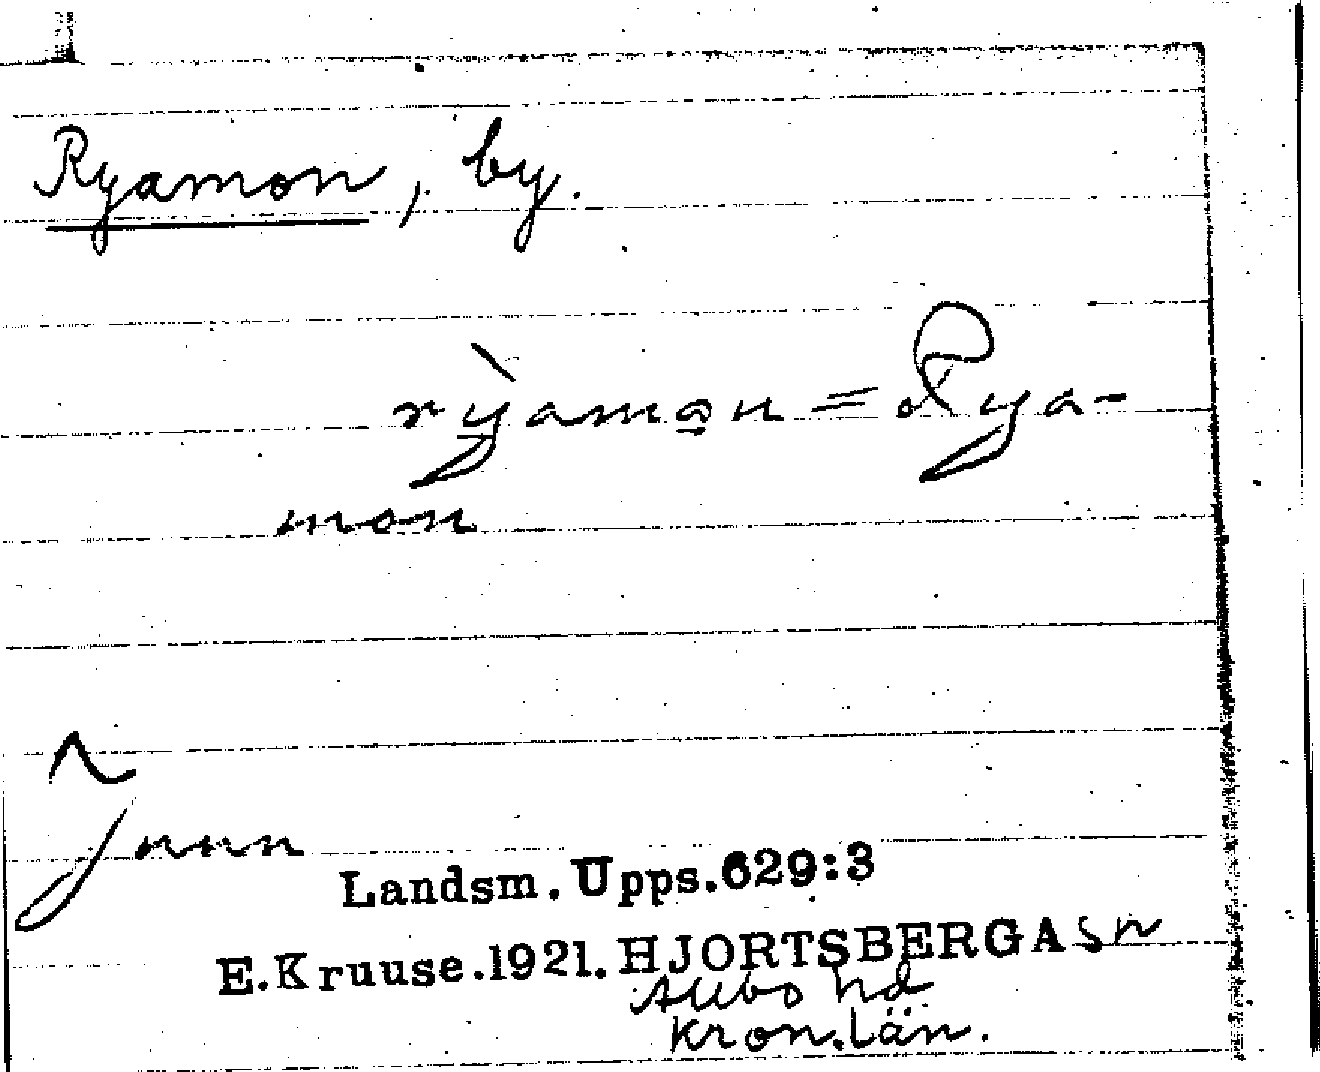 Ryamon, by.
rỳamon = Rya-
mon
Landsm. Upps. 629:3
E. Kruuse. 1921. HJORTSBERGA sn
Allbo hd
Kron. län.